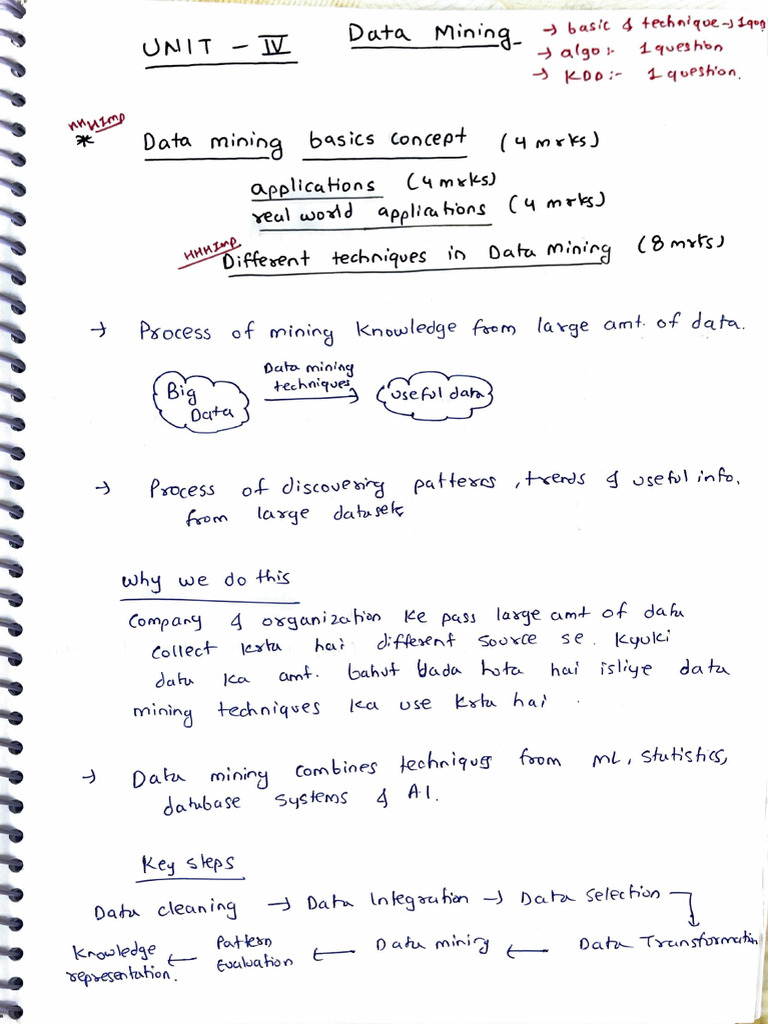 UNIT - IV Data Mining
→ basic & technique → 1 que
→ algo :- 1 question
→ KDD :- 1 question.
Imp
* Data mining basics concept (4 mrks)
applications (4 mrks)
real world applications (4 mrks)
Imp
Different techniques in Data Mining (8 mrks)
→ Process of mining knowledge from large amt. of data.
Big Data
Data mining techniques
useful data
→ Process of discovering patteres, trends & useful info.
from large datasets
Why we do this
Company & organization ke pass large amt of data
collect krta hai different source se. Kyuki
data ka amt. bahut bada hota hai isliye data
mining techniques ka use krta hai.
→ Data mining combines techniques from ML, Statistics,
database systems & A.I.
Key steps
Data cleaning → Data Integration → Data Selection
Data Transformation
← Data mining
← Pattern Evaluation
← Knowledge representation.